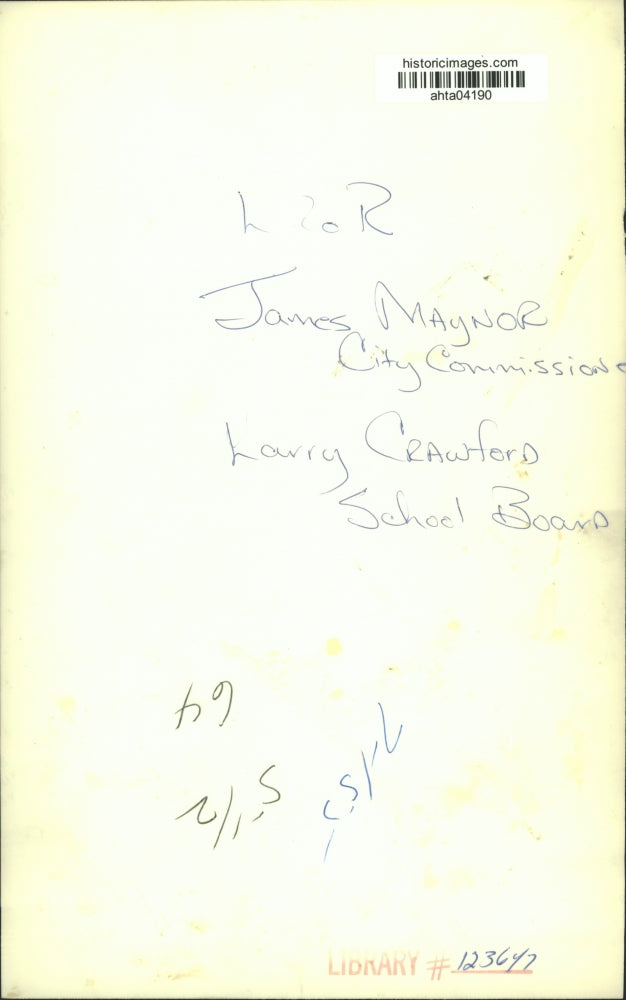 historicimages.com
ahta04190
L to R
James Maynor
City Commissione
Larry Crawford
School Board
64
LIBRARY # 123647